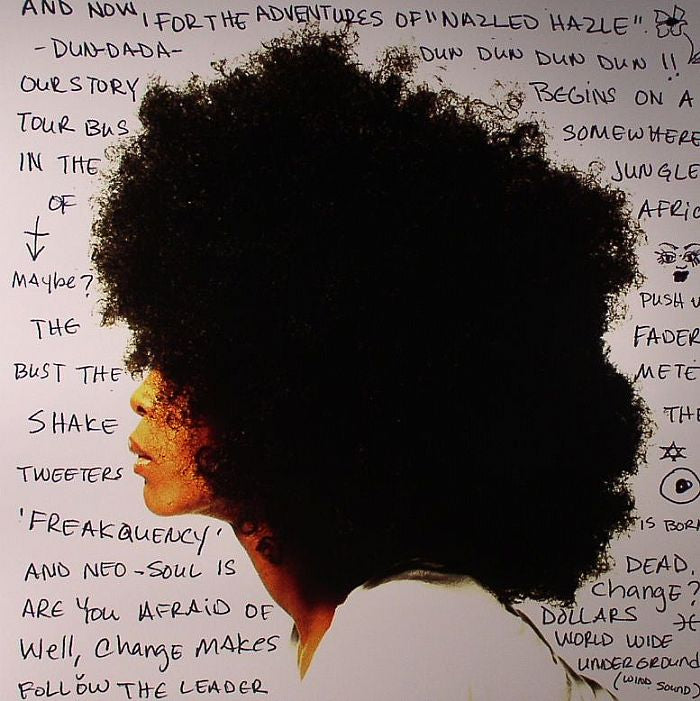 AND NOW, FOR THE ADVENTURES OF "NAZLED HAZLE".
-DUN-DADA- DUN DUN DUN DUN !!
OUR STORY BEGINS ON A
TOUR BUS SOMEWHERE
IN THE JUNGLE
OF AFRIC
MAYbe? PUSH U
THE FADER
BUST THE METE
SHAKE THE
TWEETERS
'FREAKQUENCY' IS BORN
AND NEO-SOUL IS DEAD.
ARE YOU AFRAID OF Change?
Well, Change MAKES DOLLARS
WORLD WIDE
FOLLOW THE LEADER UNDERGROUND
(WIND SOUND)